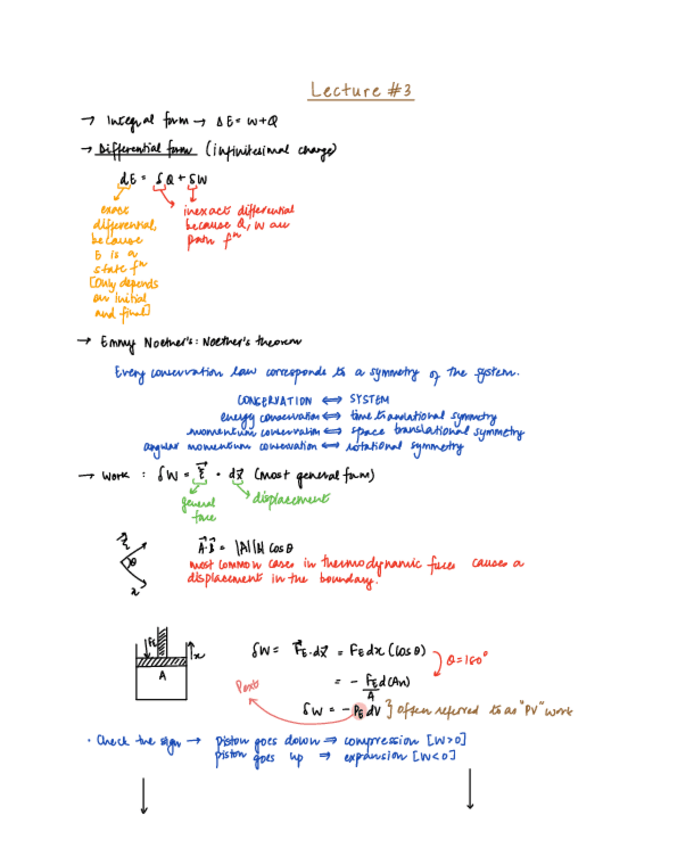 Lecture #3
→ Integral form → ΔE = W+Q
→ Differential form (infinitesimal change)
dE = δQ + δW
exact differential, because E is a state fⁿ [only depends on initial and final]
inexact differential because Q, W are path fⁿ
→ Emmy Noether's: Noether's theorem
Every conservation law corresponds to a symmetry of the system.
CONSERVATION ⟺ SYSTEM
energy conservation ⟺ time translational symmetry
momentum conservation ⟺ space translational symmetry
angular momentum conservation ⟺ rotational symmetry
→ Work : δW = ξ⃗ · dx⃗ (most general form)
general force
displacement
ξ⃗
θ
x
A⃗·B⃗ = |A||B| cosθ
most common cases in thermodynamic forces causes a
displacement in the boundary.
F_E
x
A
δW = F⃗_E·dx⃗ = F_E dx (cosθ)
θ=180°
= - F_E/A d(Ax)
P_ext
δW = - P_E dV } often referred to as "PV" work
· Check the sign → piston goes down ⇒ compression [W>0]
piston goes up ⇒ expansion [W<0]